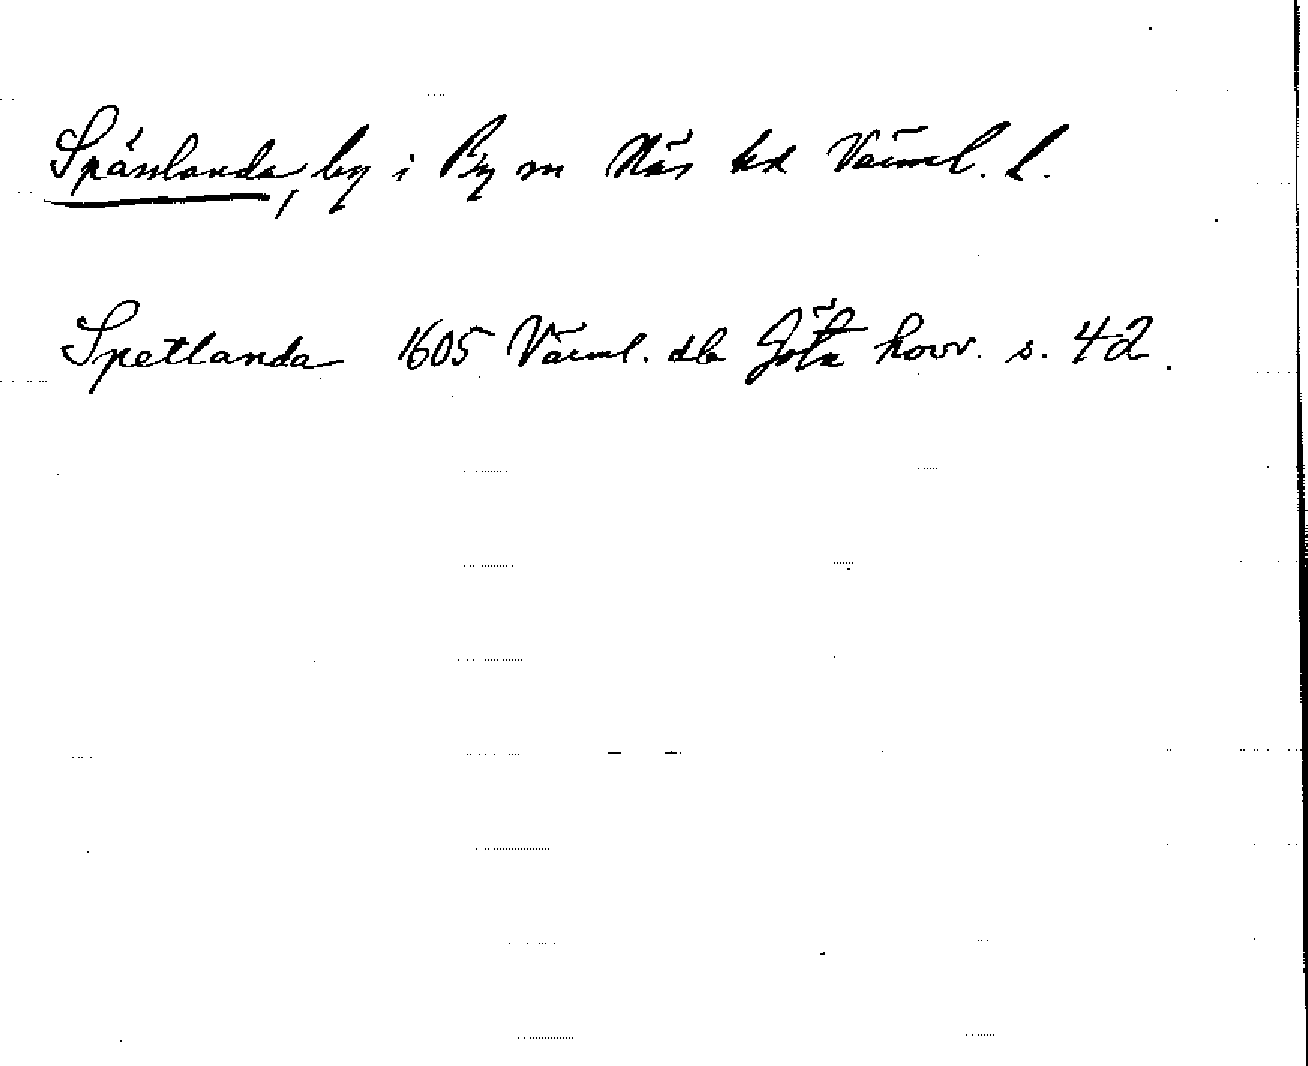 Spånlanda, by i By sn Näs hd Värml. l.
Spetlanda 1605 Värml. db Göta hovr. s. 42.